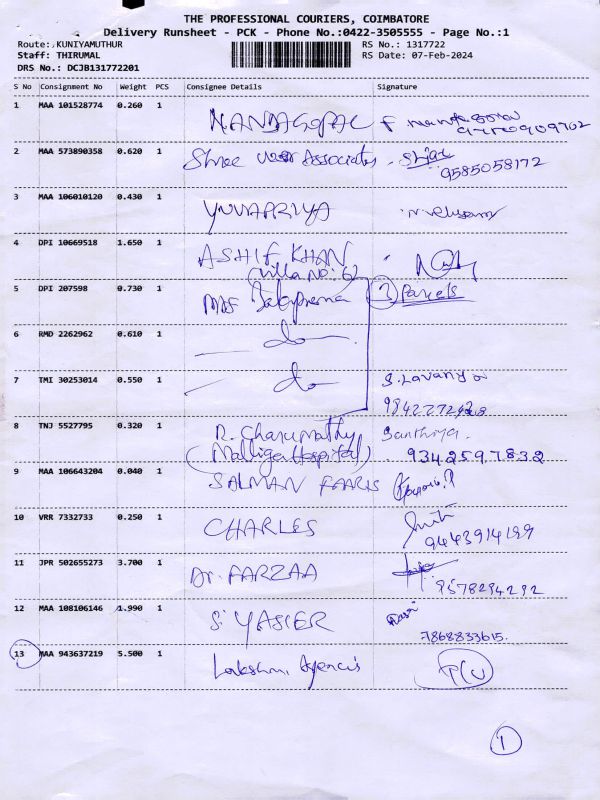 THE PROFESSIONAL COURIERS, COIMBATORE
Delivery Runsheet - PCK - Phone No.:0422-3505555 - Page No.:1
Route: KUNIYAMUTHUR RS No.: 1317722
Staff: THIRUMAL RS Date: 07-Feb-2024
DRS No.: DCJB131772201
S No Consignment No Weight PCS Consignee Details Signature
1 MAA 101528774 0.260 1 NANDAGOPAL
2 MAA 573890358 0.620 1 Shree Associates 9585058172
3 MAA 106010120 0.430 1 YUVAPRIYA
4 DPI 10669518 1.650 1 ASHIF KHAN
(Villa No: 6)
5 DPI 207598 0.730 1 Mrs Balaprema 3 Parcels
6 RMD 2262962 0.610 1 do
7 TMI 30253014 0.550 1 do S. Lavanya
8 TNJ 5527795 0.320 1 R. Charumathy Santhiya.
(Malliga Hospital) 9342597832
9 MAA 106643204 0.040 1 SALMAN FAARIS
10 VRR 7332733 0.250 1 CHARLES
9443914199
11 JPR 502655273 3.700 1 Dr. FARZAA
9578294292
12 MAA 108106146 1.990 1 S. YASIER
7868833615.
13 MAA 943637219 5.500 1 Lakshmi Agencis
1